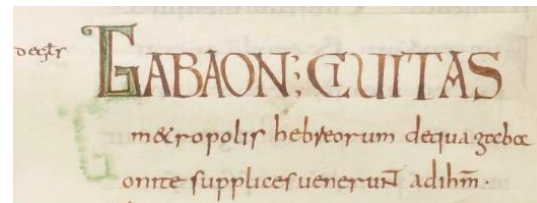 GABAON; CIUITAS
m&ropolis hebreorum dequa gaba
onite supplices uenerunt adihm̅.